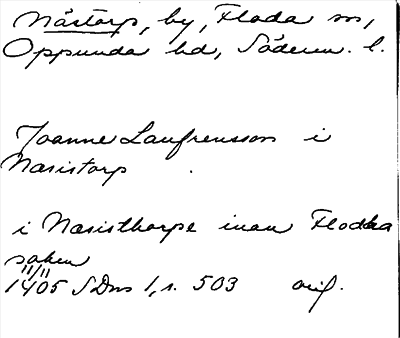 Nåstorp, by, Floda sn,
Oppunda hd, Söderm. l.
Joanne Laufrensson i
Nasistorp
i Nasisthorpe inan Flodha
sokn
11/11
1405 SDns 1, s. 503 orig.